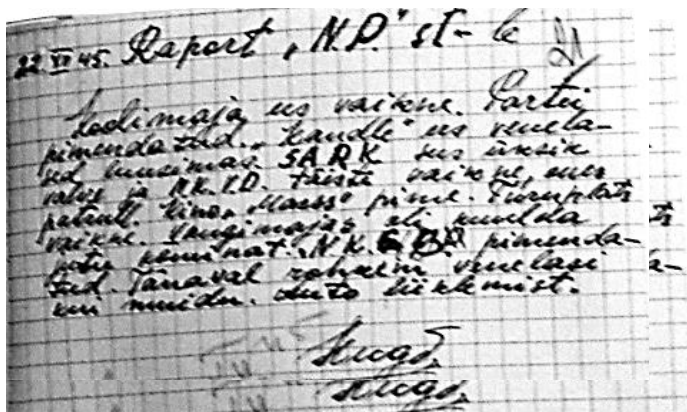 22. VI 45. Raport "N.P." st-le
Lodimaja ees vaikne. Partei
pimendatud. "Kandle" ees venela-
sed SARK ees üksik
valve ja N.K.V.D. täiesti vaikne, ees
patrull. Kino "Marss" pime. Turuplats
vaikne. oli kuulda
N.K.G.B. pimenda-
tud. Tänaval rohkem venelasi
kui muidu. Auto liiklemist.
Hugo.
ts
a-
Hugo.